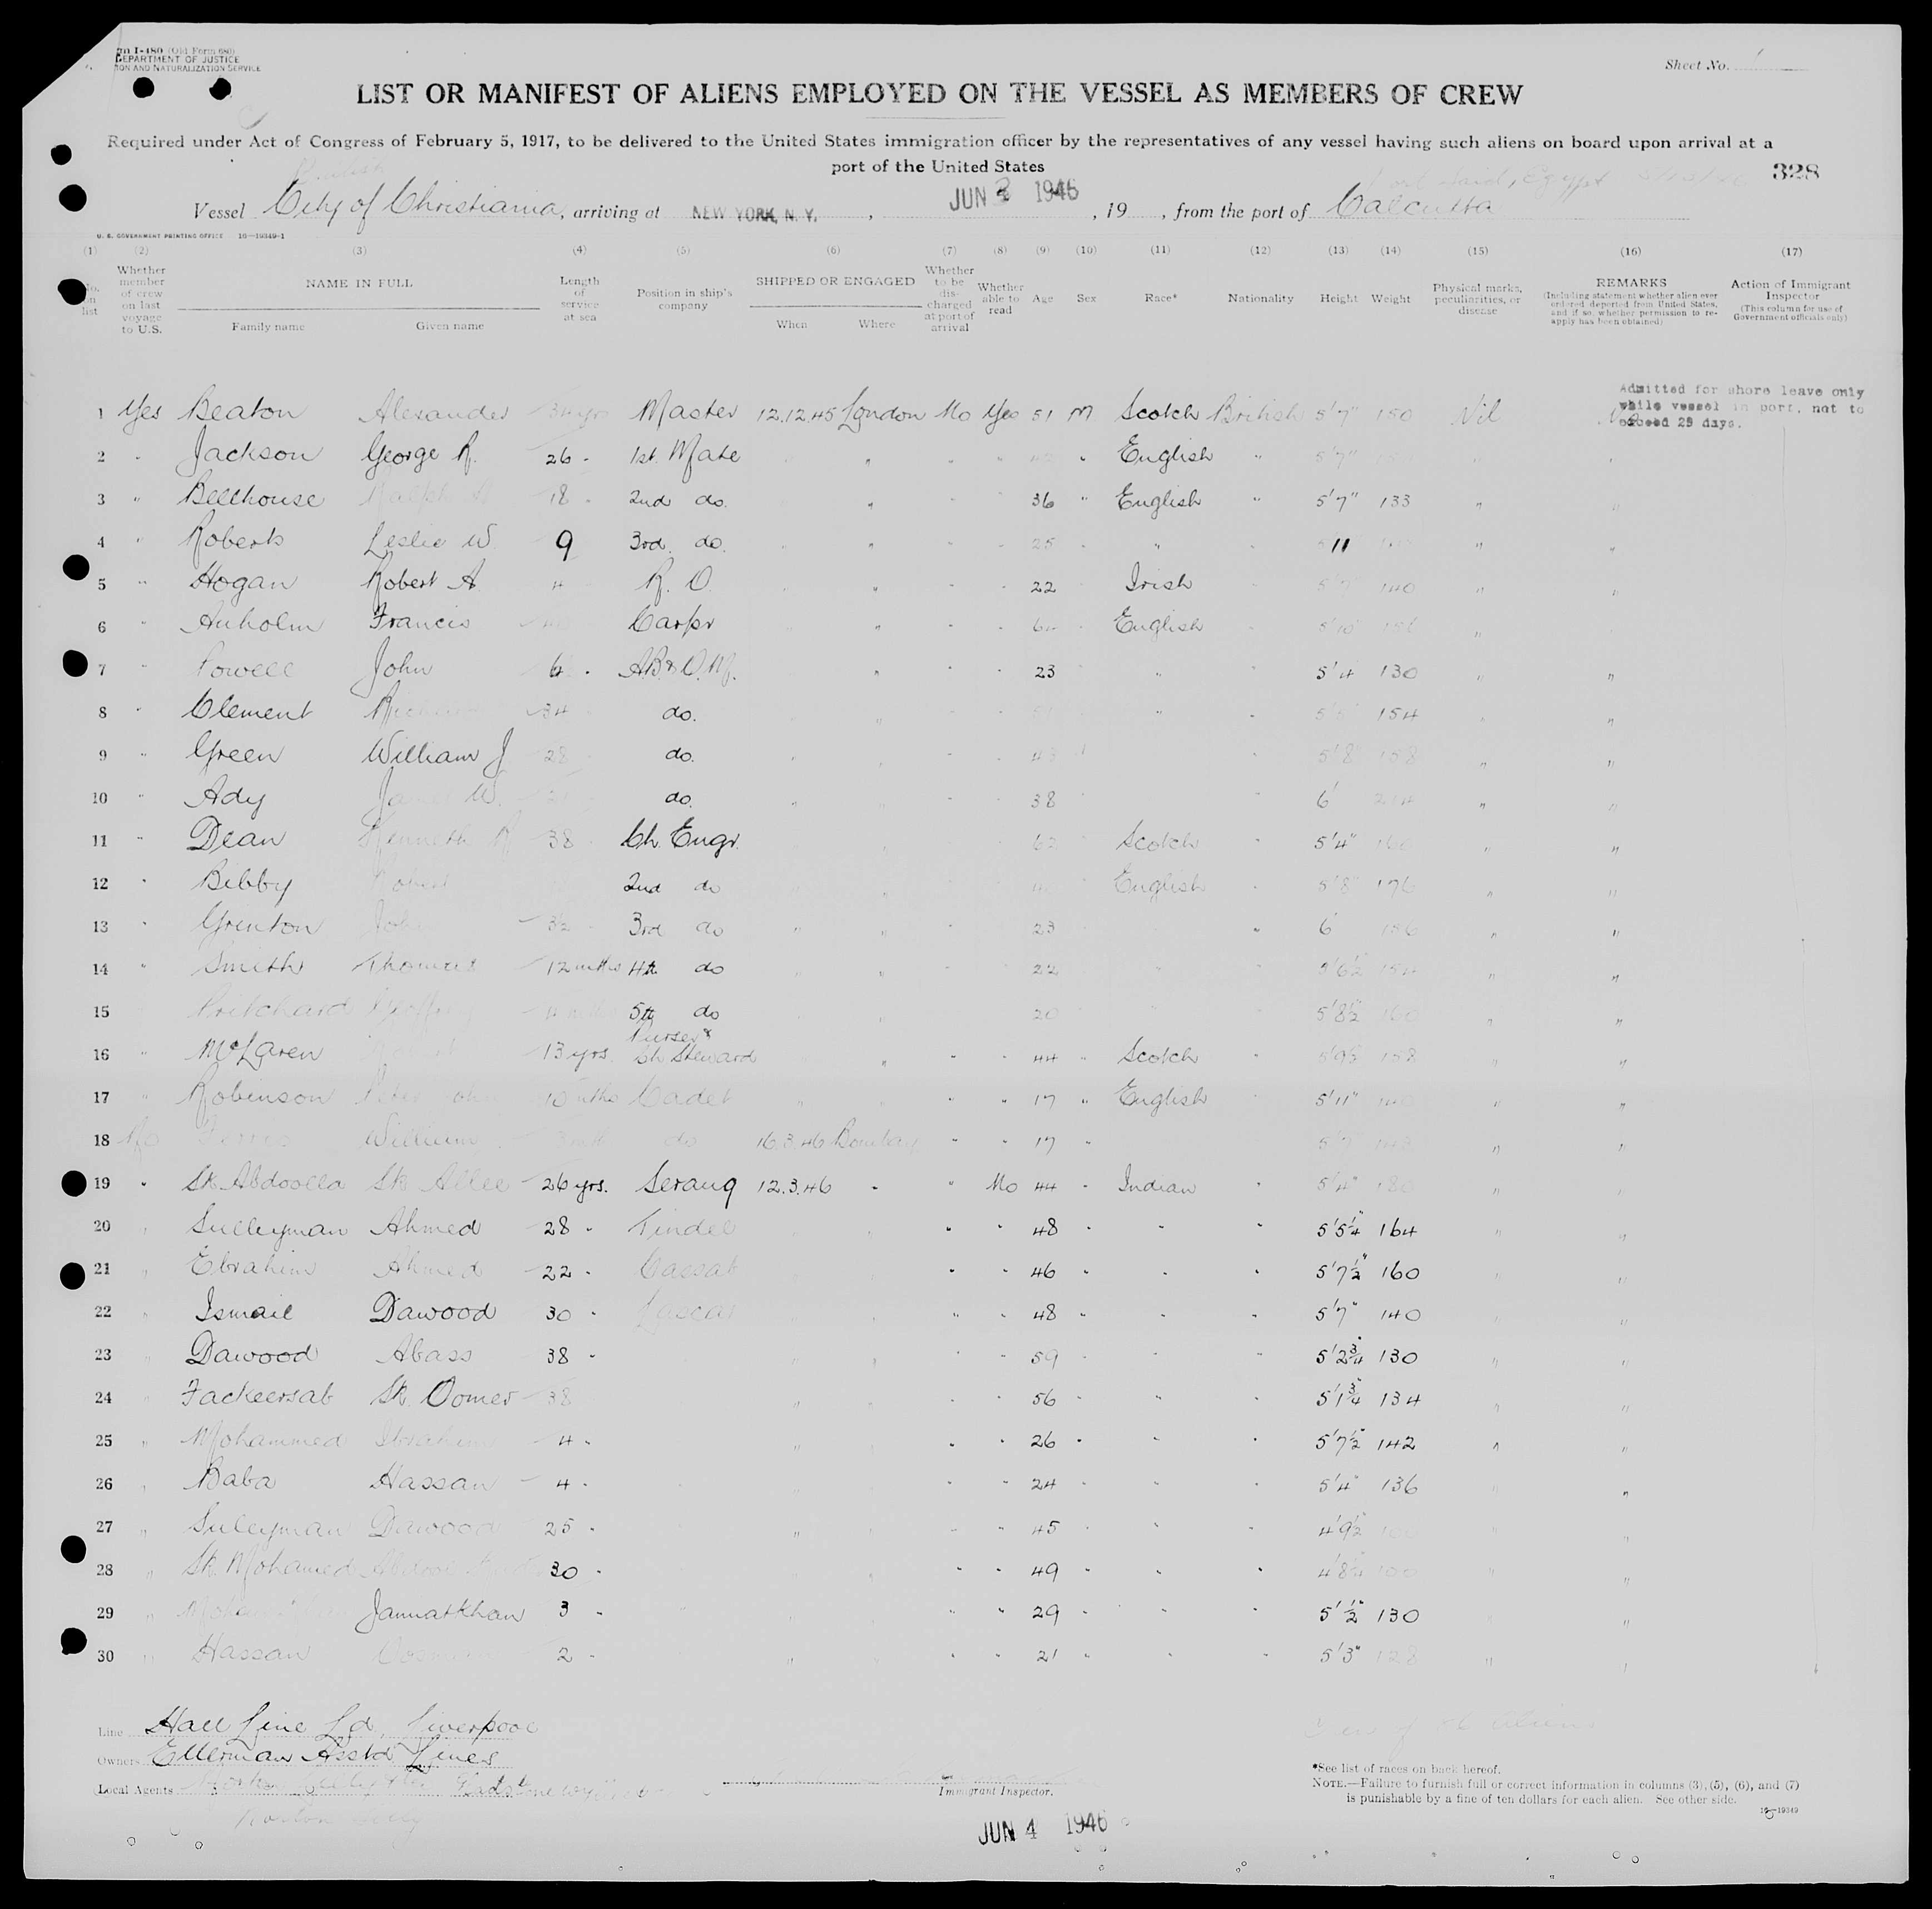 I-480 (Old Form 680)
DEPARTMENT OF JUSTICE
AND NATURALIZATION SERVICE
Sheet No. 1
LIST OR MANIFEST OF ALIENS EMPLOYED ON THE VESSEL AS MEMBERS OF CREW
Required under Act of Congress of February 5, 1917, to be delivered to the United States immigration officer by the representatives of any vessel having such aliens on board upon arrival at a
port of the United States
328
British
Port Said, Egypt
Vessel City of Christiania, arriving at NEW YORK, N. Y., JUN 3 1946, 19 , from the port of Calcutta
U. S. GOVERNMENT PRINTING OFFICE 16—19349-1
(1) (2) (3) (4) (5) (6) (7) (8) (9) (10) (11) (12) (13) (14) (15) (16) (17)
No. on list
Whether member of crew on last voyage to U.S.
NAME IN FULL
Family name Given name
Length of service at sea
Position in ship's company
SHIPPED OR ENGAGED
When Where
Whether to be discharged at port of arrival
Whether able to read
Age Sex Race* Nationality Height Weight
Physical marks, peculiarities, or disease
REMARKS
(Including statement whether alien ever ordered deported from United States, and if so, whether permission to reapply has been obtained)
Action of Immigrant Inspector
(This column for use of Government officials only)
Admitted for shore leave only
while vessel in port, not to
exceed 29 days.
1 Yes Beaton Alexander 34 yrs Master 12.12.45 London No Yes 51 M Scotch British 5'7" 150 Nil
2 " Jackson George R. 26 " 1st. Mate " " " " English " 5'7" "
3 " Bellhouse Ralph 18 " 2nd do. " " " 36 " English " 5'7" 133 " "
4 " Roberts Leslie W. 9 3rd. do. " " " " 25 " " " 5'11 " "
5 " Hogan Robert A. 4 R. O. " " " 22 Irish 5'7" 140 " "
6 " Anholm Francis Carpr " " " " English " 5'10" "
7 " Powell John 6 " A.B. & Q.M. " " " 23 " 5'4 130 " "
8 " Clement 34 do. " " " " " 154 " "
9 " Green William J 28 do. " " " " 5'8" 158 " "
10 " Ady W. do. " " " 38 " 6' " "
11 " Dean Kenneth R 38 " Ch. Engr. 62 Scotch " 5'4" 160 " "
12 " Bibby Robert 2nd do " " English " 5'8" 176 " "
13 " Grinton John 3½ " 3rd do " " " 23 " 6' 156 " "
14 " Smith Thomas 12 mths 4th do " " 22 " 5'6½" 154 " "
15 Pritchard 5th do " 20 " 5'8½" 160 " "
Purser &
16 " McLaren 13 yrs. Ch. Steward " " " 44 " Scotch " 158 " "
17 " Robinson Peter John 10 mths Cadet " " " " 17 " English 5'11" 140 " "
18 No William do 16.3.46 Bombay " " 17 " 5'7 " "
19 " Sk. Abdoolla Sk. Allee 26 yrs. Serang 12.3.46 " " No 44 " Indian " 5'4" 180 "
20 " Suleyman Ahmed 28 " Tindel " " " " 48 " " " 5'5¼" 164 " "
21 " Ebrahim Ahmed 22 " Cassab " " 46 " " " 5'7½" 160 " "
22 " Ismail Dawood 30 " Lascar " " " 48 " " " 5'7" 140 " "
23 " Dawood Abass 38 " " " " " 59 " " " 5'2¾" 130 " "
24 " Fackeersab Sk. Oomer 38 " " " " 56 " " " 5'1¾" 134 " "
25 " Mohammed Ibrahim 4 " " " " 26 " " " 5'7½" 142 " "
26 " Baba Hassan 4 " " " " " 24 " " " 5'4" 136 " "
27 " Suleyman Dawood 25 " " " " 45 " " " 4'9½" 100 "
28 " Sk. Mohamed 30 " " " " " 49 " " " 100 " "
29 " Jannatkhan 3 " " " " 29 " " " 5'½" 130 " "
30 " Hassan 2 " " " " " 21 " " " 5'3" 128 " "
Line Hall Line Ld, Liverpool
Owners Ellerman Asstd Lines
Local Agents
Norton Lilly
Immigrant Inspector.
JUN 4 1946
*See list of races on back hereof.
NOTE.—Failure to furnish full or correct information in columns (3), (5), (6), and (7)
is punishable by a fine of ten dollars for each alien. See other side.
16—19349